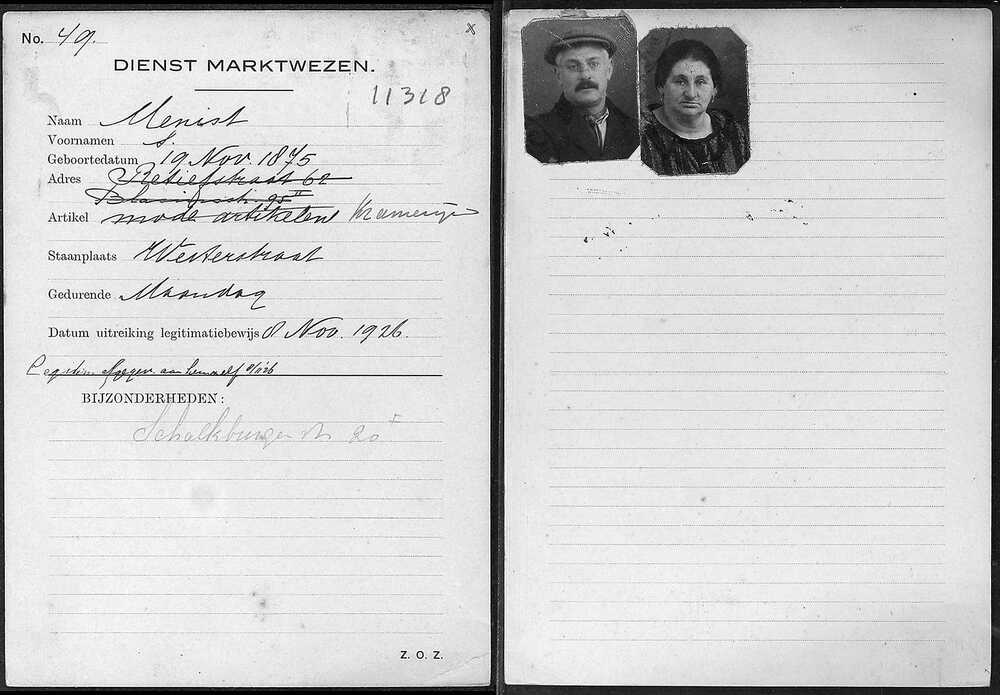 No. 49.
DIENST MARKTWEZEN.
11318
Naam Menist
Voornamen S.
Geboortedatum 19 Nov. 1875
Adres Retiefstraat 62
95 II
Artikel mode artikelen Kramerijen
Staanplaats Westerstraat
Gedurende Maandag
Datum uitreiking legitimatiebewijs 8 Nov. 1926.
aan hemzelf
BIJZONDERHEDEN:
Schalkburgerstr 20 I
Z. O. Z.